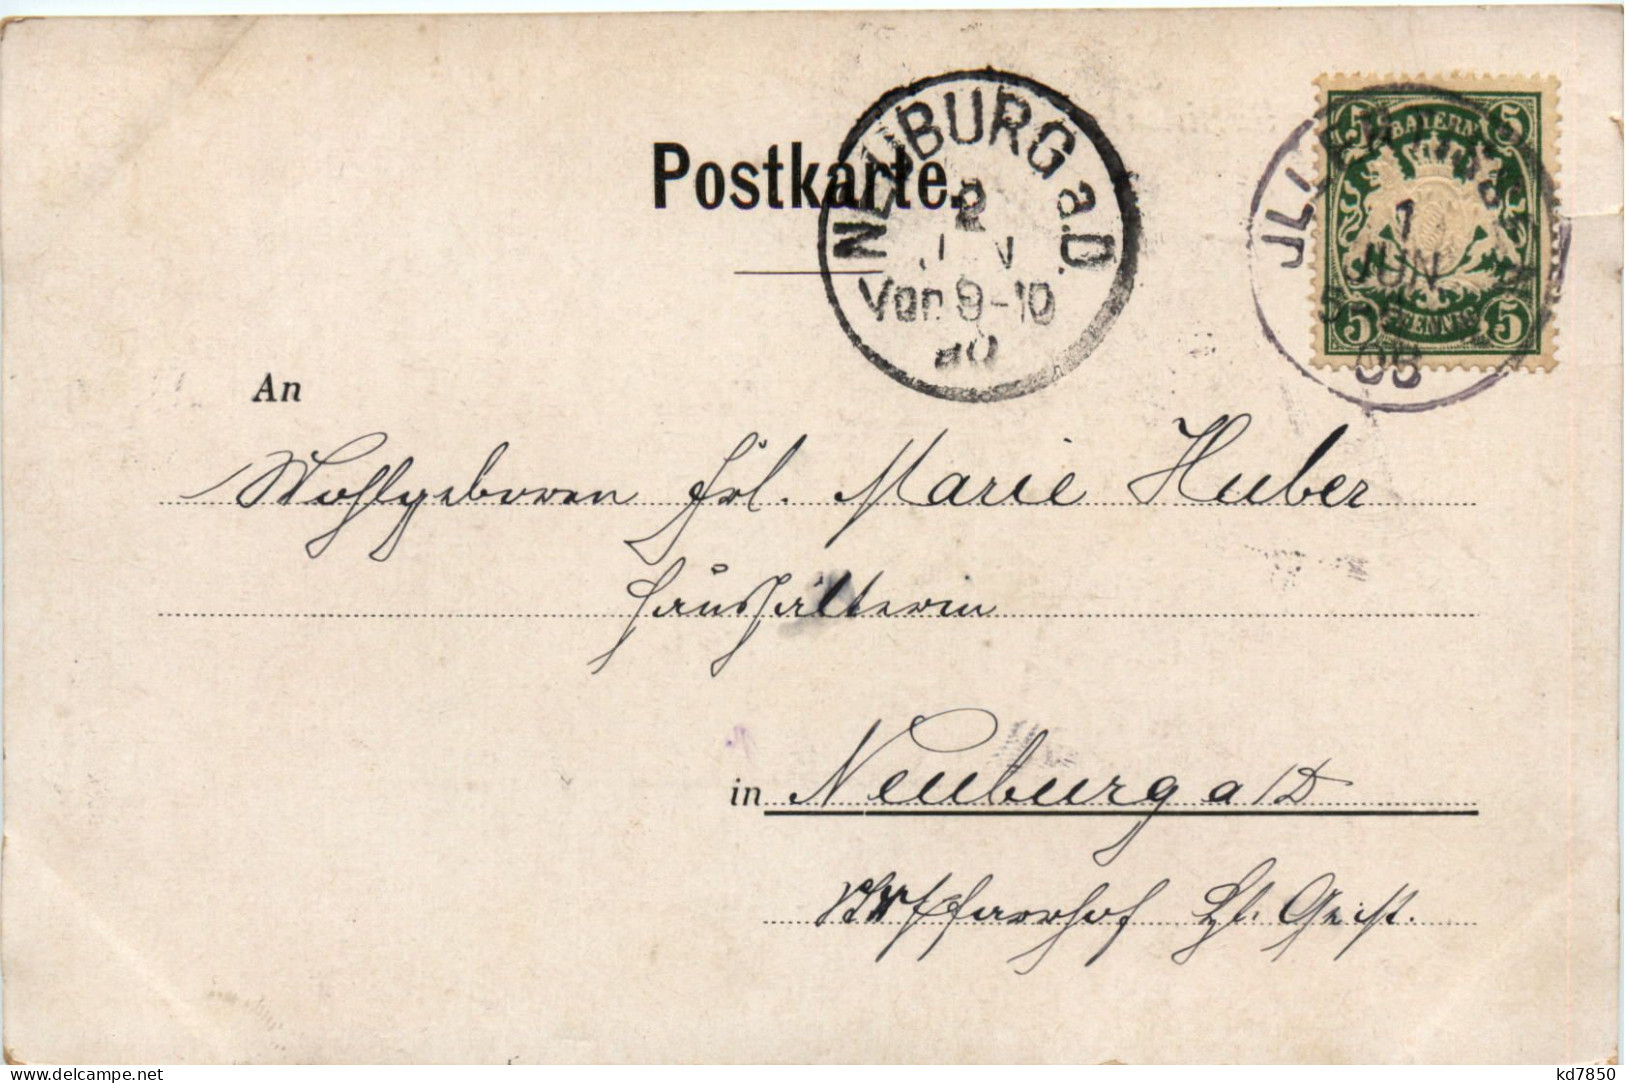 Postkarte.
NEUBURG a.D.
2
JUN
Vor. 9-10
BAYERN
5 5
1
JUN
5 PFENNIG 5
An
Wohlgeboren Frl. Marie Huber
Haushälterin
in Neuburg a/D
Pfarrhof Hl. Geist.
www.delcampe.net
kd7850